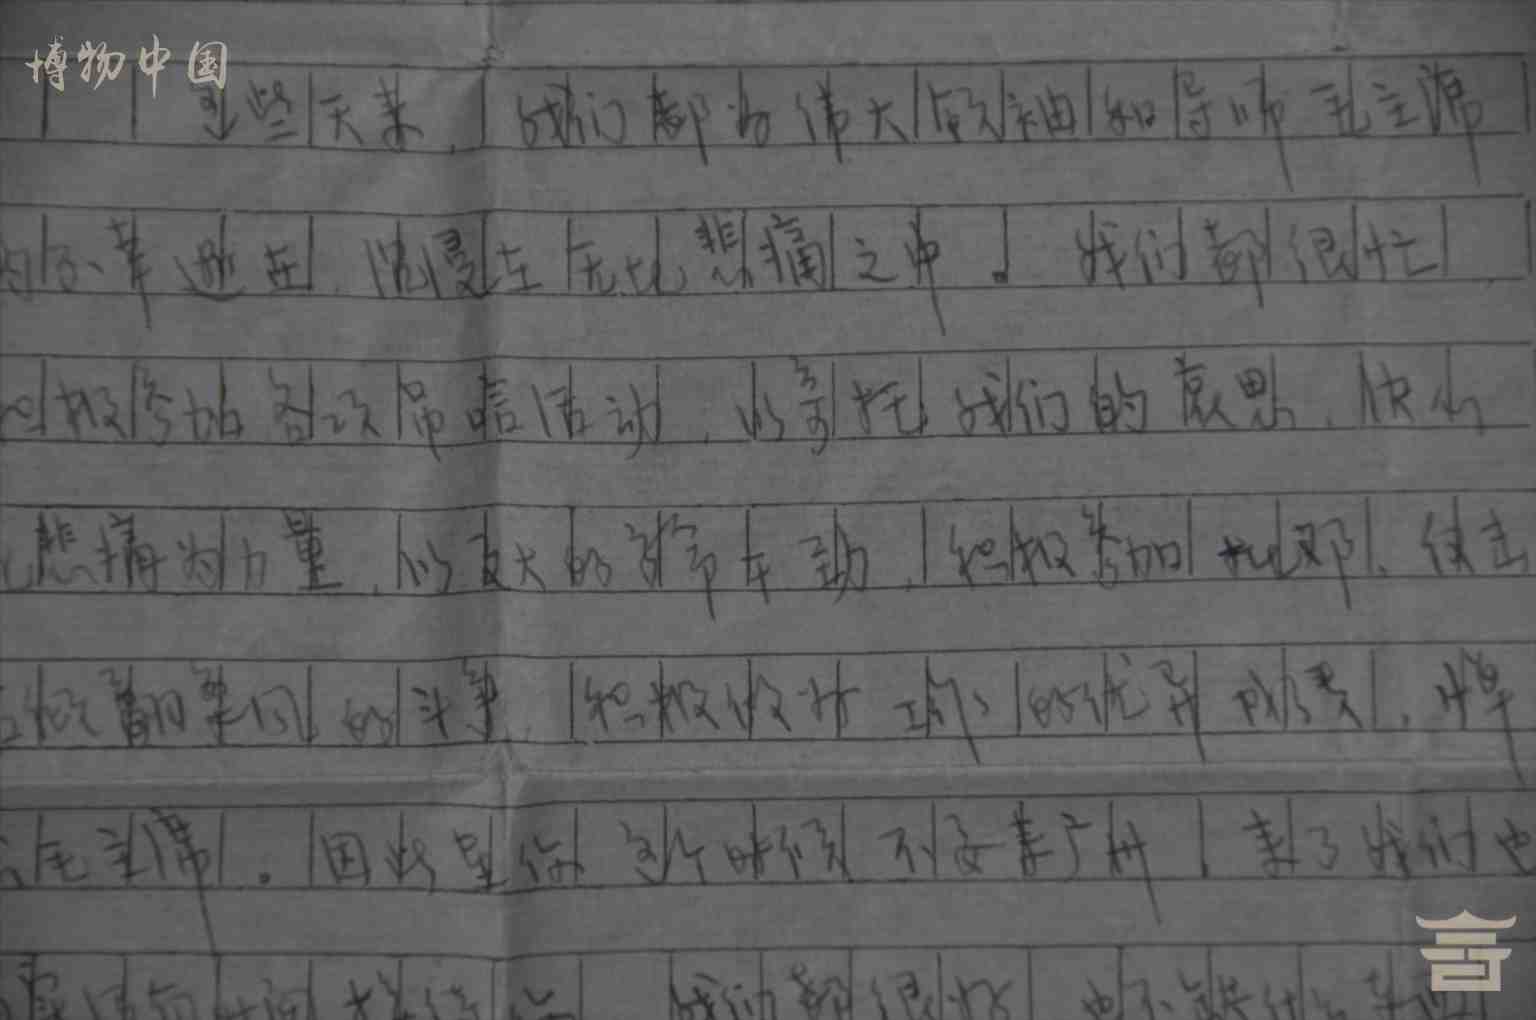 博物中国
这些天来，我们都为伟大领袖和导师毛主席
的不幸逝世，沉浸在无比悲痛之中。我们都很忙，
积极参加各项吊唁活动，以寄托我们的哀思，决心
化悲痛为力量，以更大的 积极参加批邓、反击
右倾翻案风的斗争，积极 的优异成绩，悼
念毛主席。因此望你这个时候不要来广州，来了我们也
我们都很好，也不缺什么东西